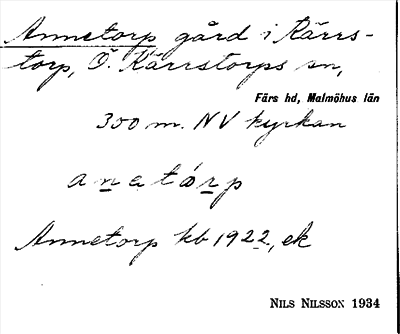 Annetorp gård i Kärrs-
torp, Ö. Kärrstorps sn,
Färs hd, Malmöhus län
300 m. NV kyrkan
anetórp
Annetorp kb 1922, ek
NILS NILSSON 1934